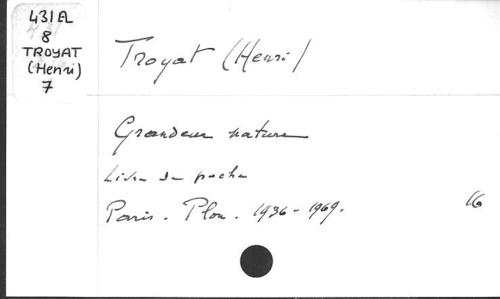 431 EL
8
TROYAT
(Henri)
7
Troyat (Henri)
Grandeur nature
Livre de poche
Paris. Plon. 1936-1969.
16